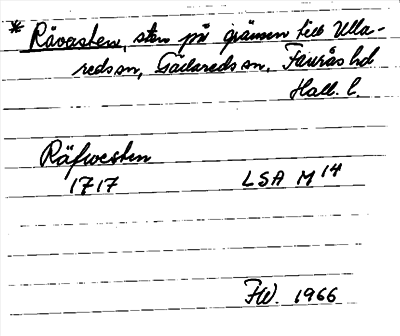 * Rävasten, sten på gränsen till Ulla-
reds sn, Gällareds sn, Faurås hd
Hall. l.
Räfwesten
1717 LSA M 14
FW. 1966